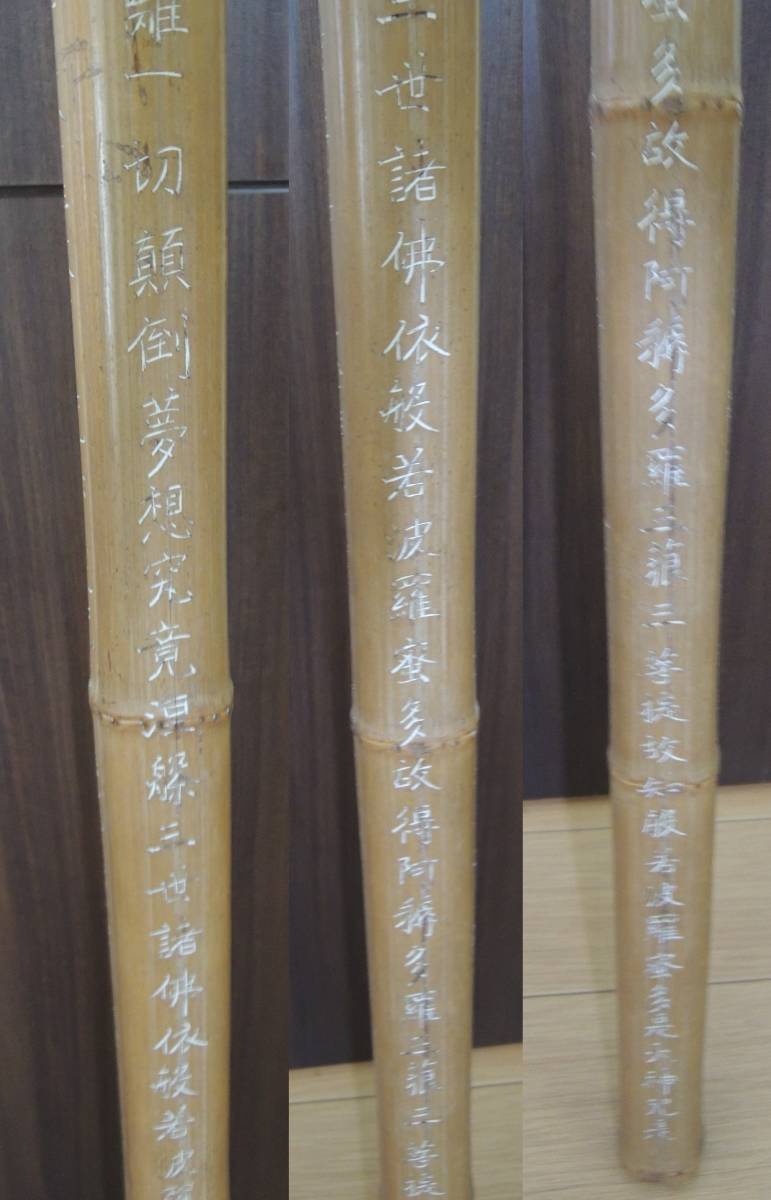 離一切顛倒夢想究竟涅槃三世諸佛依般若波羅
三世諸佛依般若波羅蜜多故得阿耨多羅三藐三菩提
蜜多故得阿耨多羅三藐三菩提故知般若波羅蜜多是大神咒是